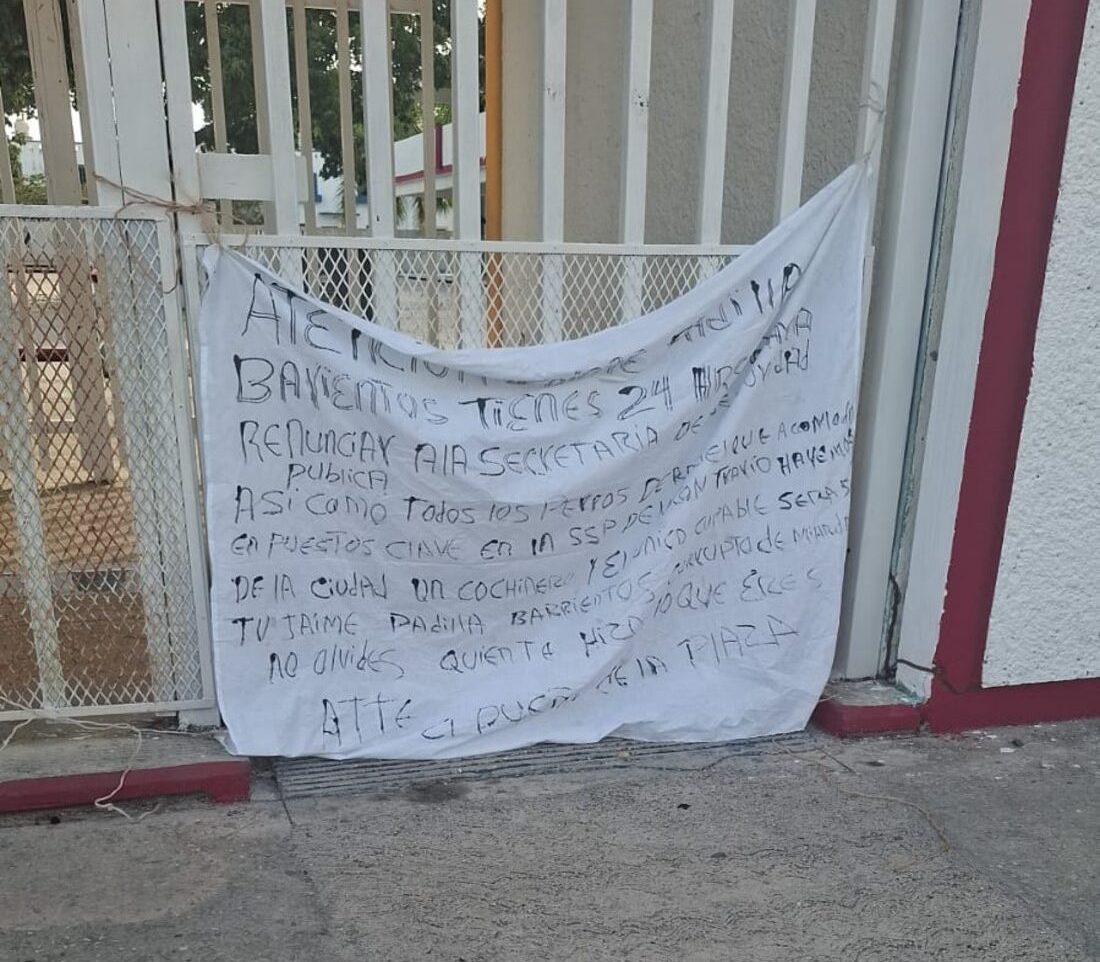 ATENCION JAIME PADILLA
BARIENTOS TIENES 24 HRS PARA
RENUNCIAR A LA SECRETARIA DE SEGURIDAD
PUBLICA
ASI COMO TODOS LOS PERROS DE QUE ACOMODA
EN PUESTOS CLAVE EN LA SSP DE LO CONTRARIO HAREMOS
DE LA CIUDAD UN COCHINERO Y EL UNICO CULPABLE SERAS
TU JAIME PADILLA BARRIENTOS CORRUPTO DE MIERDA
NO OLVIDES QUIEN TE HIZO LO QUE ERES
ATTE DE LA PLAZA